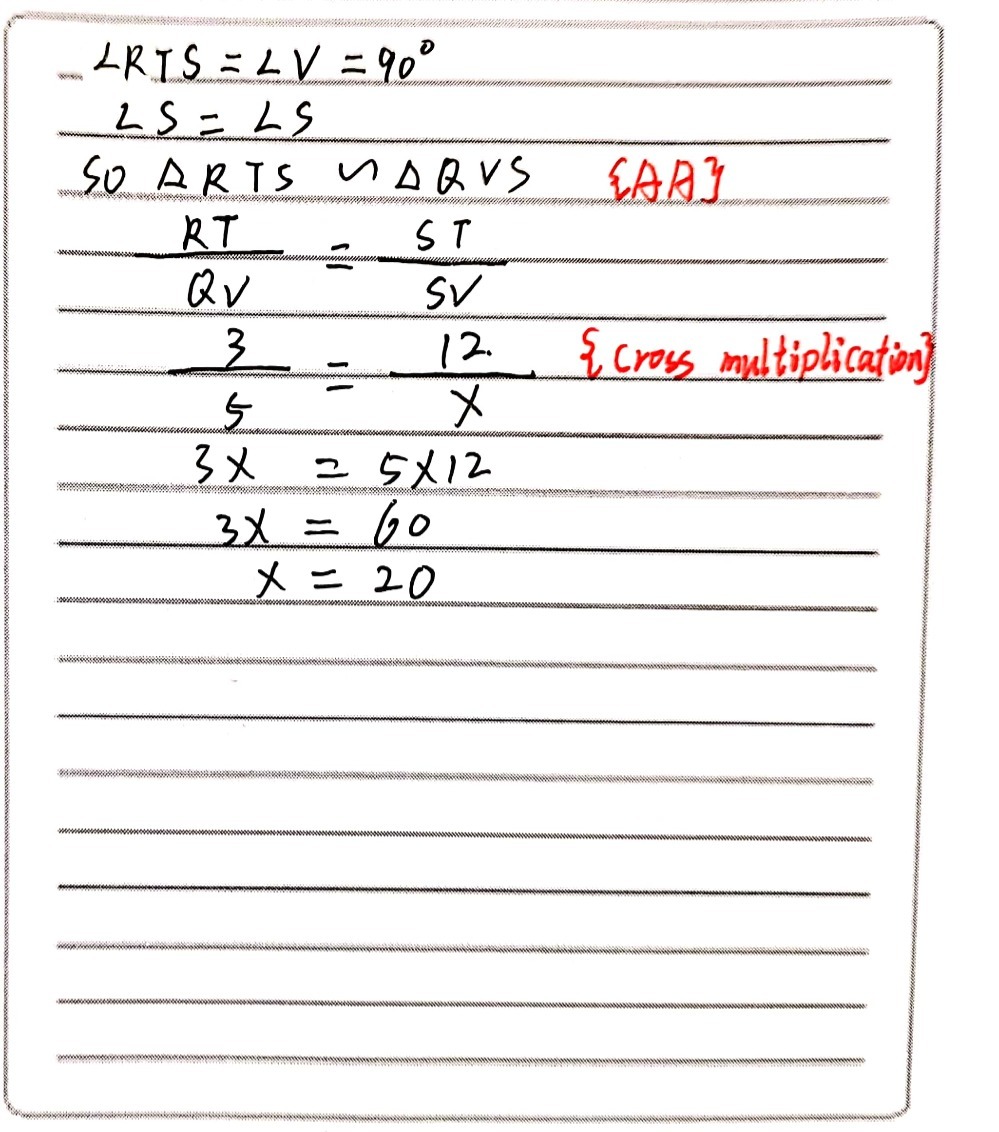 ∠RTS = ∠V = 90°
∠S = ∠S
So △RTS ∽ △QVS {AA}
RT/QV = ST/SV
3/5 = 12/x {Cross multiplication}
3x = 5×12
3x = 60
x = 20